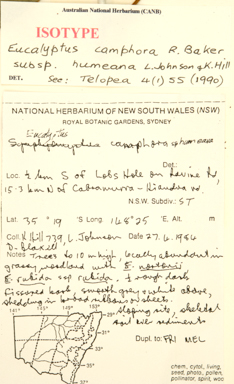 Australian National Herbarium (CANB)
ISOTYPE
Eucalyptus camphora R. Baker
subsp. humeana L. Johnson & K. Hill
DET. See: Telopea 4(1) 55 (1990)
NATIONAL HERBARIUM OF NEW SOUTH WALES (NSW)
ROYAL BOTANIC GARDENS, SYDNEY
Eucalyptus
camphora humeana
Det.:
Loc ½ km S of Lobs Hole on Ravine Rd
15·3 km N of Cabramurra - Kiandra rd.
N.S.W. Subdiv.: ST
Lat. 35 ° 19 'S Long. 148° 25 'E. Alt. m
Coll. K. Hill 739, L. Johnson Date 27.4.1984
D. Blaxell
Notes Trees to 10 m high, locally abundant in
grassy woodland with E. nortonii
E. rubida ssp rubida, rough dark
fissured bark, smooth grey & white above,
shedding in broad sheets.
141° 145° 149° 153°
29°
sloping site, skeletal
soil on sediments
33°
35°
37°
Dupl. to: FRI MEL
chem, cytol, living,
seed, photo, pollen,
pollinator, spirit, woo